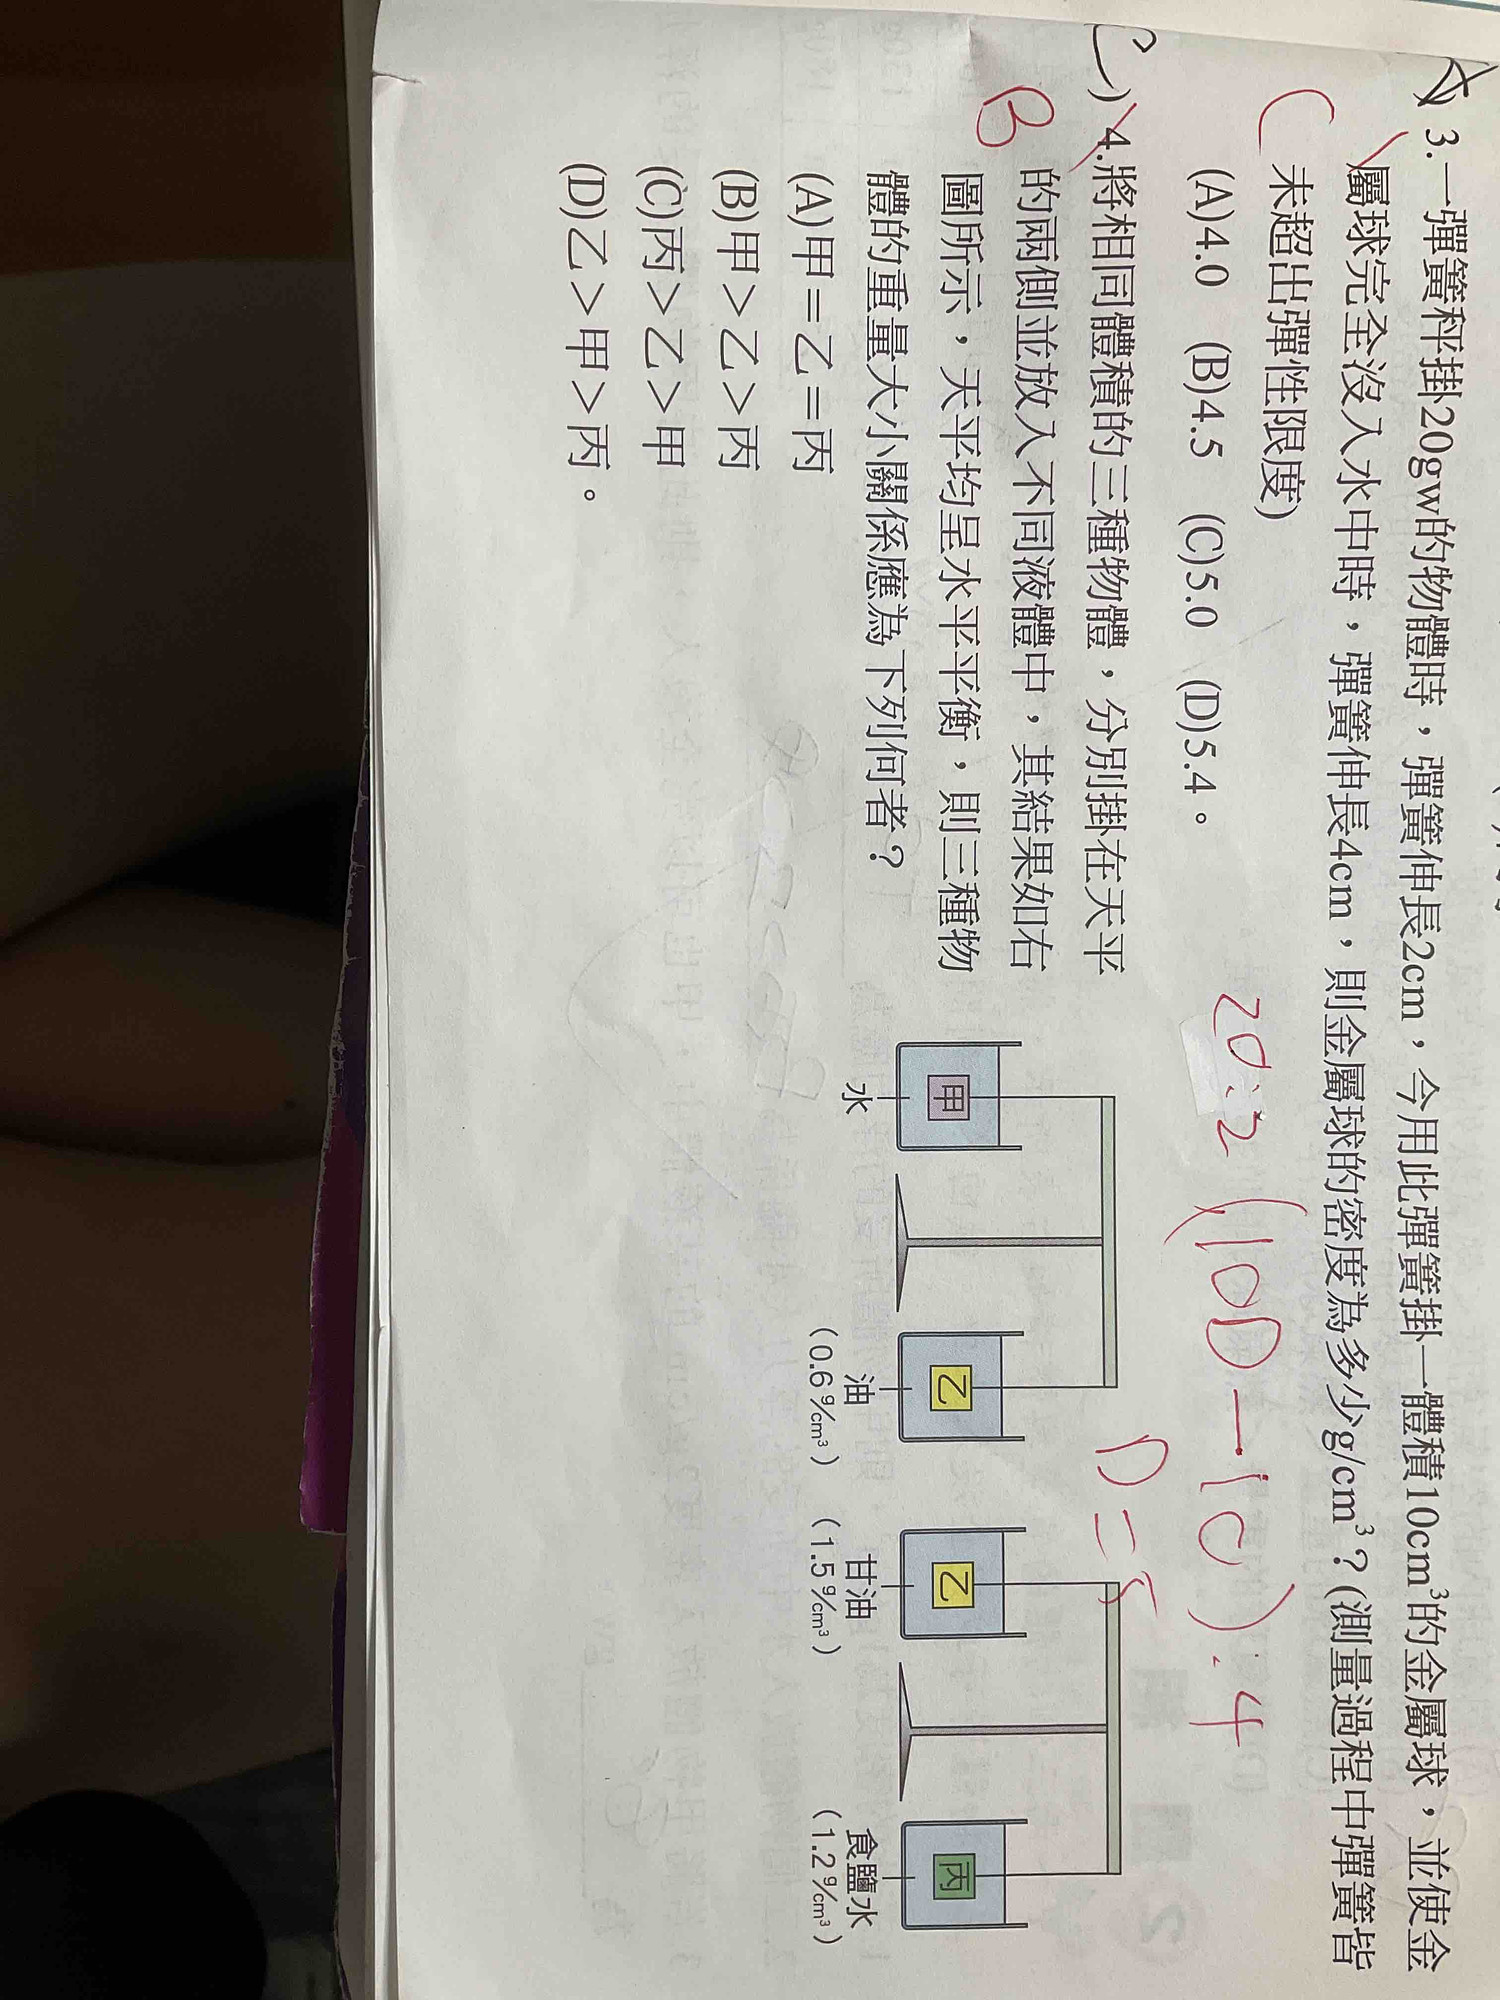 3.一彈簧秤掛20gw的物體時，彈簧伸長2cm，今用此彈簧掛一體積10cm³的金屬球，並使金
屬球完全沒入水中時，彈簧伸長4cm，則金屬球的密度為多少g/cm³？(測量過程中彈簧皆
未超出彈性限度)
C
(A)4.0 (B)4.5 (C)5.0 (D)5.4。
20:2(10D-10):4
D=5
(C)4.將相同體積的三種物體，分別掛在天平
B
的兩側並放入不同液體中，其結果如右
圖所示，天平均呈水平平衡，則三種物
體的重量大小關係應為下列何者？
(A)甲＝乙＝丙
(B)甲＞乙＞丙
(C)丙＞乙＞甲
(D)乙＞甲＞丙。
甲
乙
乙
丙
水
油
甘油
食鹽水
(0.6 g/cm³)
(1.5 g/cm³)
(1.2 g/cm³)